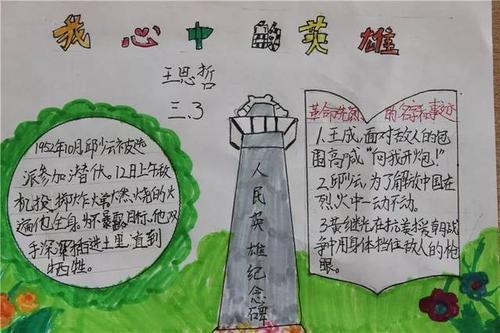 我心中的英雄
王思哲
三.3
1952年10月邱少云被选
派参加潜伏。12日上午敌
机投掷炸弹燃烧的火
遍他全身。为不暴露目标,他双
手深深插进土里,直到
牺牲。
人民英雄纪念碑
革命先烈的名字和事迹
1.王成,面对敌人的包
围高喊"向我开炮!"
2.邱少云,为了解放中国在
烈火中一动不动。
3.黄继光在抗美援朝战
争中用身体挡住敌人的炮
眼。